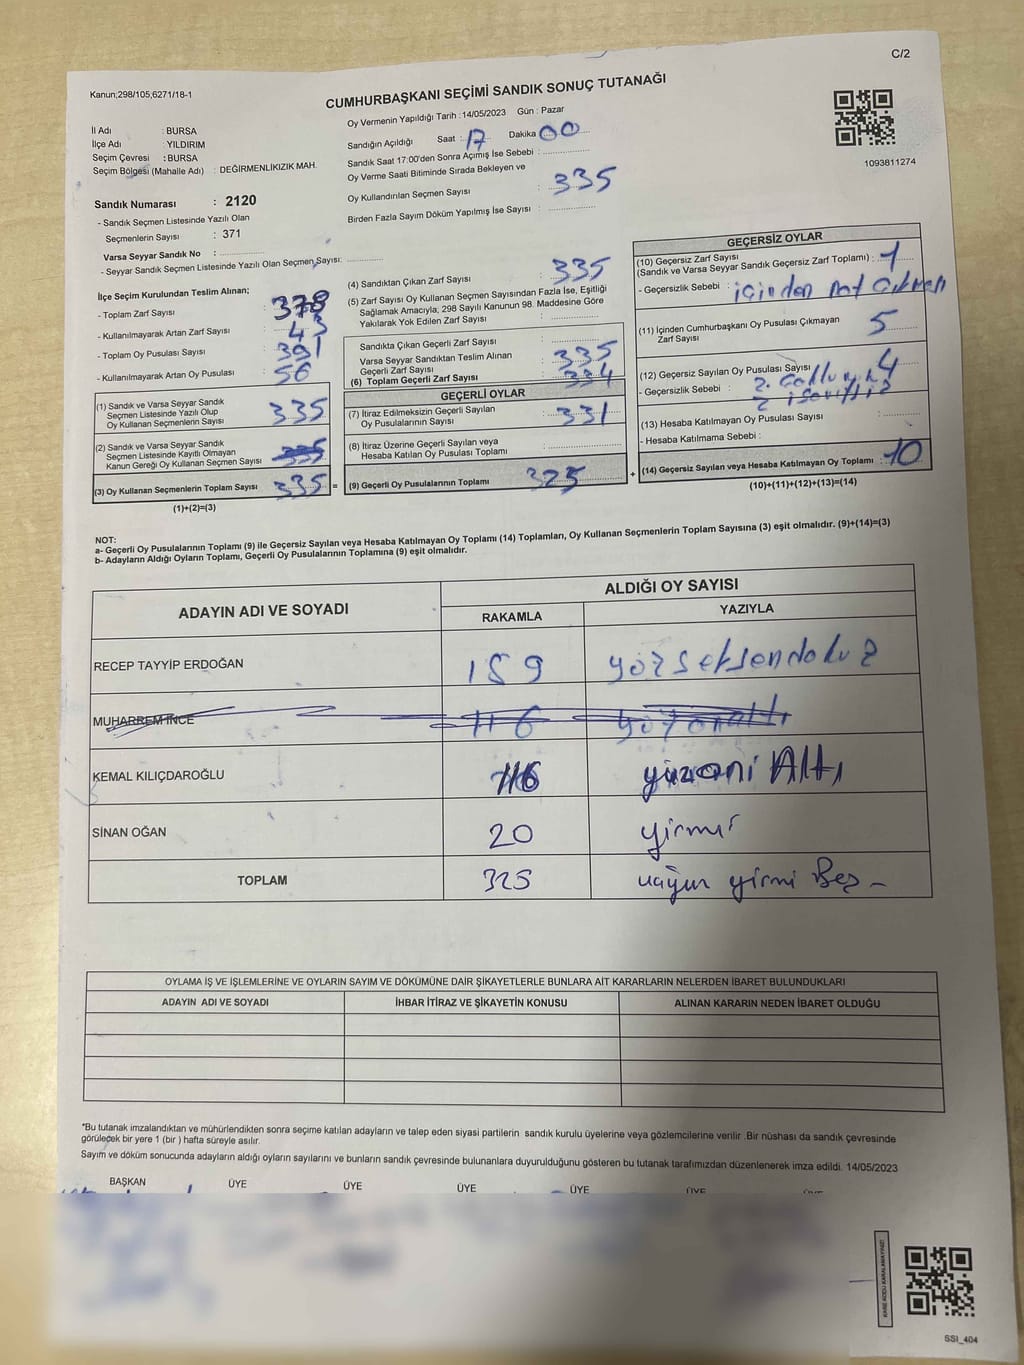 C/2
Kanun;298/105,6271/18-1
CUMHURBAŞKANI SEÇİMİ SANDIK SONUÇ TUTANAĞI
İl Adı : BURSA
İlçe Adı : YILDIRIM
Seçim Çevresi : BURSA
Seçim Bölgesi (Mahalle Adı) : DEĞİRMENLİKIZIK MAH.
Sandık Numarası : 2120
- Sandık Seçmen Listesinde Yazılı Olan
Seçmenlerin Sayısı : 371
Varsa Seyyar Sandık No :
- Seyyar Sandık Seçmen Listesinde Yazılı Olan Seçmen Sayısı:
Oy Vermenin Yapıldığı Tarih :14/05/2023 Gün : Pazar
Sandığın Açıldığı Saat : 17 Dakika 00
Sandık Saat 17:00'den Sonra Açımış İse Sebebi :
Oy Verme Saati Bitiminde Sırada Bekleyen ve
Oy Kullandırılan Seçmen Sayısı : 335
Birden Fazla Sayım Döküm Yapılmış İse Sayısı :
1093811274
İlçe Seçim Kurulundan Teslim Alınan;
- Toplam Zarf Sayısı : 378
- Kullanılmayarak Artan Zarf Sayısı : 43
- Toplam Oy Pusulası Sayısı : 391
- Kullanılmayarak Artan Oy Pusulası : 56
(1) Sandık ve Varsa Seyyar Sandık
Seçmen Listesinde Yazılı Olup
Oy Kullanan Seçmenlerin Sayısı : 335
(2) Sandık ve Varsa Seyyar Sandık
Seçmen Listesinde Kayıtlı Olmayan
Kanun Gereği Oy Kullanan Seçmen Sayısı : 335
(3) Oy Kullanan Seçmenlerin Toplam Sayısı : 335 =
(1)+(2)=(3)
(4) Sandıktan Çıkan Zarf Sayısı : 335
(5) Zarf Sayısı Oy Kullanan Seçmen Sayısından Fazla İse, Eşitliği
Sağlamak Amacıyla, 298 Sayılı Kanunun 98. Maddesine Göre
Yakılarak Yok Edilen Zarf Sayısı :
Sandıkta Çıkan Geçerli Zarf Sayısı :
Varsa Seyyar Sandıktan Teslim Alınan
Geçerli Zarf Sayısı : 335
(6) Toplam Geçerli Zarf Sayısı : 334
GEÇERLİ OYLAR
(7) İtiraz Edilmeksizin Geçerli Sayılan
Oy Pusulalarının Sayısı : 331
(8) İtiraz Üzerine Geçerli Sayılan veya
Hesaba Katılan Oy Pusulası Toplamı :
(9) Geçerli Oy Pusulalarının Toplamı : 325 +
GEÇERSİZ OYLAR
(10) Geçersiz Zarf Sayısı
(Sandık ve Varsa Seyyar Sandık Geçersiz Zarf Toplamı) : 1
- Geçersizlik Sebebi : içinden not çıkması
(11) İçinden Cumhurbaşkanı Oy Pusulası Çıkmayan
Zarf Sayısı : 5
(12) Geçersiz Sayılan Oy Pusulası Sayısı : 4
- Geçersizlik Sebebi : 2.
2
(13) Hesaba Katılmayan Oy Pusulası Sayısı :
- Hesaba Katılmama Sebebi :
(14) Geçersiz Sayılan veya Hesaba Katılmayan Oy Toplamı : 10
(10)+(11)+(12)+(13)=(14)
NOT:
a- Geçerli Oy Pusulalarının Toplamı (9) ile Geçersiz Sayılan veya Hesaba Katılmayan Oy Toplamı (14) Toplamları, Oy Kullanan Seçmenlerin Toplam Sayısına (3) eşit olmalıdır. (9)+(14)=(3)
b- Adayların Aldığı Oyların Toplamı, Geçerli Oy Pusulalarının Toplamına (9) eşit olmalıdır.
ADAYIN ADI VE SOYADI ALDIĞI OY SAYISI
RAKAMLA YAZIYLA
RECEP TAYYİP ERDOĞAN 189 yözseksendokuz
MUHARREM İNCE 116 yözonaltı
KEMAL KILIÇDAROĞLU 116 yüzoni Altı
SİNAN OĞAN 20 yirmi
TOPLAM 325 üçyüz yirmi Beş -
OYLAMA İŞ VE İŞLEMLERİNE VE OYLARIN SAYIM VE DÖKÜMÜNE DAİR ŞİKAYETLERLE BUNLARA AİT KARARLARIN NELERDEN İBARET BULUNDUKLARI
ADAYIN ADI VE SOYADI İHBAR İTİRAZ VE ŞİKAYETİN KONUSU ALINAN KARARIN NEDEN İBARET OLDUĞU
*Bu tutanak imzalandıktan ve mühürlendikten sonra seçime katılan adayların ve talep eden siyasi partilerin sandık kurulu üyelerine veya gözlemcilerine verilir .Bir nüshası da sandık çevresinde
görülecek bir yere 1 (bir ) hafta süreyle asılır.
Sayım ve döküm sonucunda adayların aldığı oyların sayılarını ve bunların sandık çevresinde bulunanlara duyurulduğunu gösteren bu tutanak tarafımızdan düzenlenerek imza edildi. 14/05/2023
BAŞKAN ÜYE ÜYE ÜYE ÜYE ÜYE ÜYE
KARE KODU KARALAMAYINIZ!
SSI_404